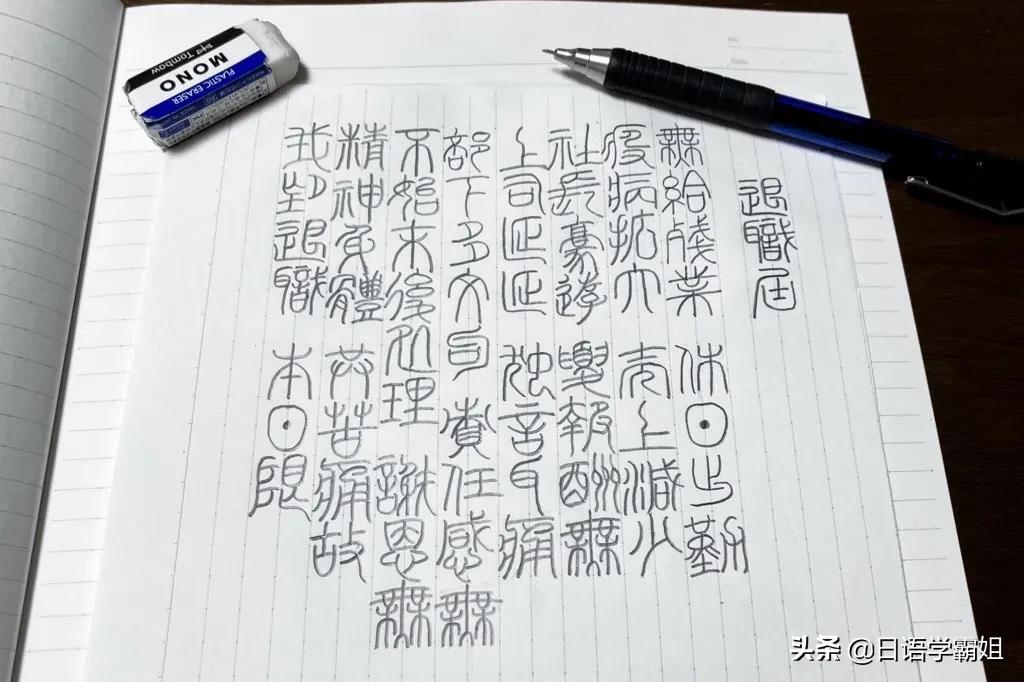 退職届
無給残業 休日出勤
疫病拡大 売上減少
社長豪遊 夏報酬無
上司延延 独言耳痛
部下多文句 責任感無
不始末後処理 謝恩無
精神身体 共苦痛故
我即退職 本日限
No.
Date
Tombow
MONO
PLASTIC ERASER
头条 @日语学霸姐